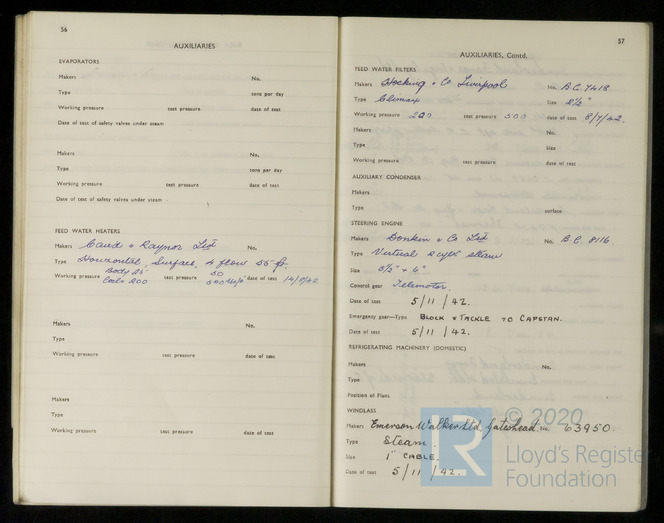 56
AUXILIARIES
EVAPORATORS
Makers No.
Type tons per day
Working pressure test pressure date of test
Date of test of safety valves under steam
Makers No.
Type tons per day
Working pressure test pressure date of test
Date of test of safety valves under steam
FEED WATER HEATERS
Makers Caird & Raynor Ltd No.
Type Horizontal, Surface, 4 flow 55 ft.
Working pressure Body 25 test pressure 50 date of test 14/9/42
Coils 200
Makers No.
Type
Working pressure test pressure date of test
Makers
Type
Working pressure test pressure date of test
57
AUXILIARIES, Contd.
FEED WATER FILTERS
Makers Hocking & Co Liverpool No. B.C. 7418
Type Climax Size 2½"
Working pressure 200 test pressure 500 date of test 8/7/42.
Makers No.
Type Size
Working pressure test pressure date of test
AUXILIARY CONDENSER
Makers
Type surface
STEERING ENGINE
Makers Donkin & Co Ltd No. B.C. 8116.
Type Vertical 2 cylr steam
Size
Control gear Telemotor.
Date of test 5/11/42.
Emergency gear—Type BLOCK & TACKLE TO CAPSTAN.
Date of test 5/11/42.
REFRIGERATING MACHINERY (DOMESTIC)
Makers No.
Type
Position of Plant
WINDLASS
Makers Emerson Walker Ltd, Gateshead. No. 63950.
Type Steam.
Size 1" CABLE.
Date of test 5/11/42.
LR © 2020
Lloyd's Register
Foundation